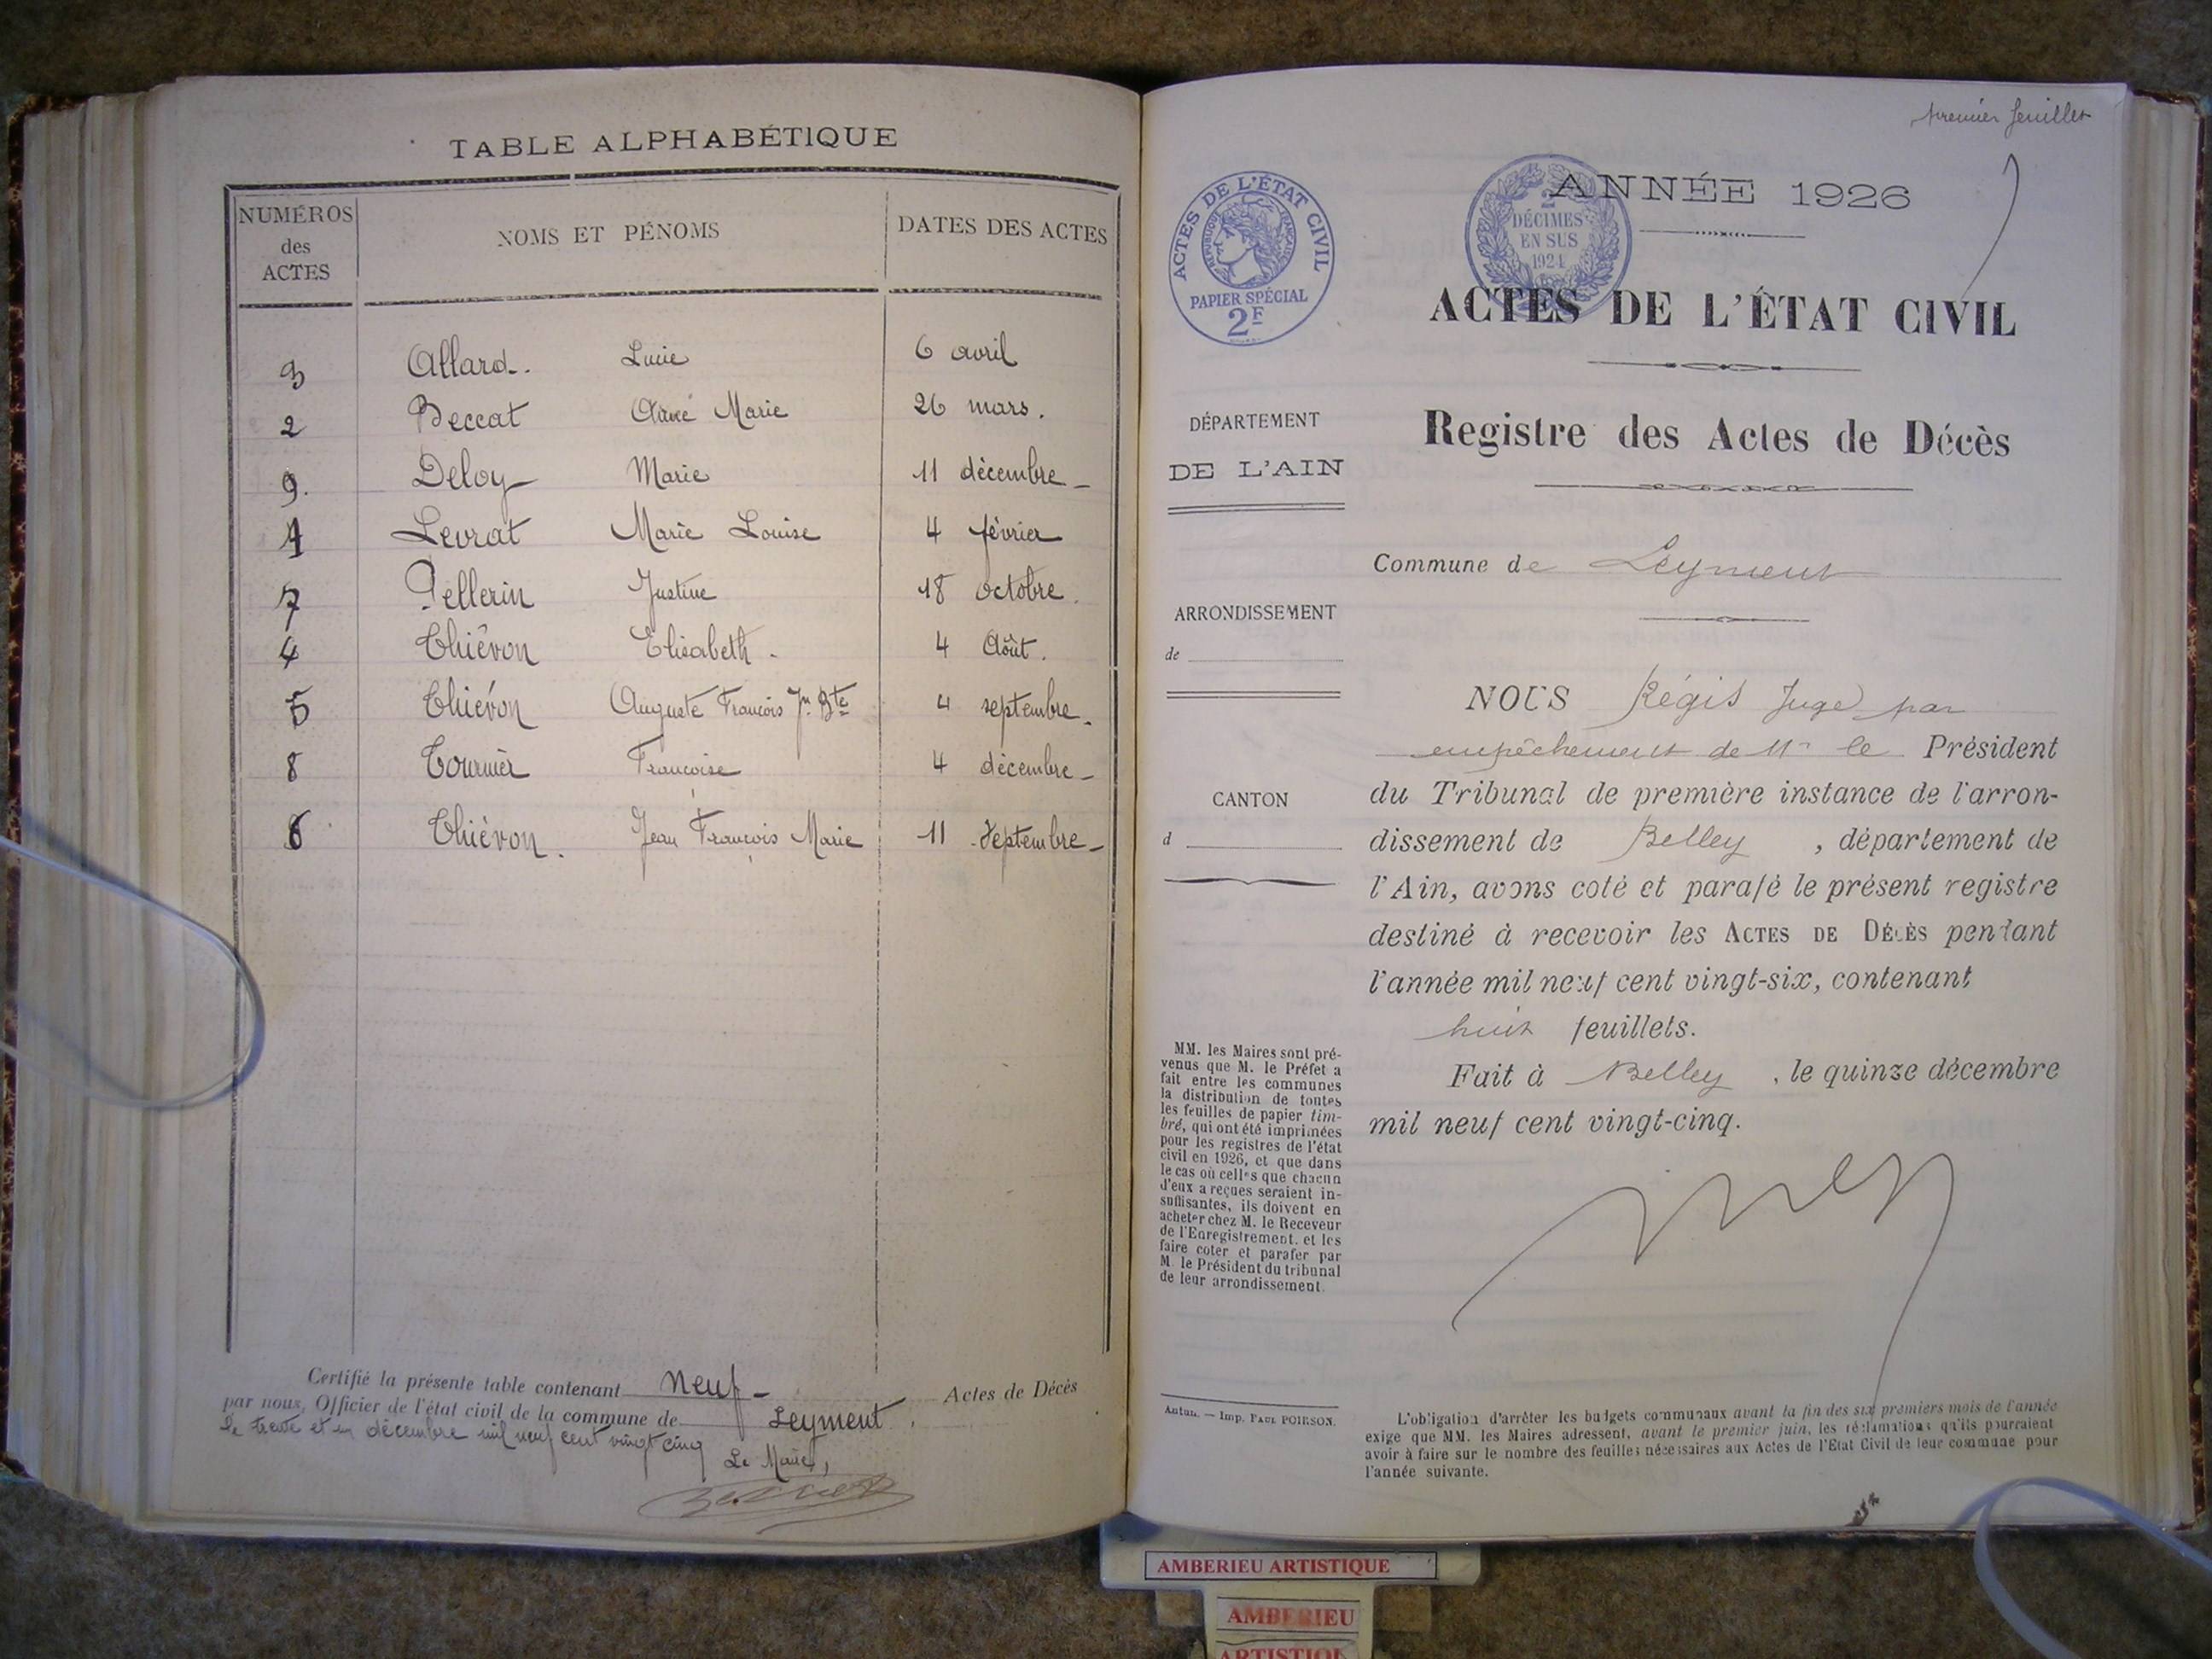 TABLE ALPHABÉTIQUE
NUMÉROS des ACTES
NOMS ET PÉNOMS
DATES DES ACTES
3 Allard. Lucie 6 avril
2 Beccat Aimé Marie 26 mars.
9. Deloy Marie 11 décembre
1 Levrat Marie Louise 4 février
7 Pellerin Justine 18 octobre.
4 Thiévon Elisabeth. 4 Août.
5 Thiévon Auguste François Jn Bte 4 septembre.
8 Tournier Françoise 4 décembre
6 Thiévon. Jean François Marie 11 Septembre
Certifié la présente table contenant Neuf Actes de Décès
par nous, Officier de l'état civil de la commune de Leyment.
le trente et un décembre mil neuf cent vingt cinq
Le Maire,
premier feuillet
ANNÉE 1926
ACTES DE L'ÉTAT CIVIL
RÉPUBLIQUE FRANÇAISE
PAPIER SPÉCIAL
2F
2
DÉCIMES
EN SUS
1924
ACTES DE L'ÉTAT CIVIL
Registre des Actes de Décès
DÉPARTEMENT
DE L'AIN
Commune de Leyment
ARRONDISSEMENT
de
CANTON
d
NOUS Régis Juge par
empêchement de Mr le Président
du Tribunal de première instance de l'arron-
dissement de Belley, département de
l'Ain, avons coté et parafé le présent registre
destiné à recevoir les ACTES DE DÉCÈS pendant
l'année mil neuf cent vingt-six, contenant
huit feuillets.
Fait à Belley, le quinze décembre
mil neuf cent vingt-cinq.
MM. les Maires sont pré-
venus que M. le Préfet a
fait entre les communes
la distribution de toutes
les feuilles de papier tim-
bré, qui ont été imprimées
pour les registres de l'état
civil en 1926, et que dans
le cas où celles que chacun
d'eux a reçues seraient in-
suffisantes, ils doivent en
acheter chez M. le Receveur
de l'Enregistrement, et les
faire coter et parafer par
M. le Président du tribunal
de leur arrondissement.
Autun. — Imp. PAUL POIRSON.
L'obligation d'arrêter les budgets communaux avant la fin des six premiers mois de l'année
exige que MM. les Maires adressent, avant le premier juin, les réclamations qu'ils pourraient
avoir à faire sur le nombre des feuilles nécessaires aux Actes de l'Etat Civil de leur commune pour
l'année suivante.
AMBERIEU ARTISTIQUE
AMBERIEU
ARTISTIQUE